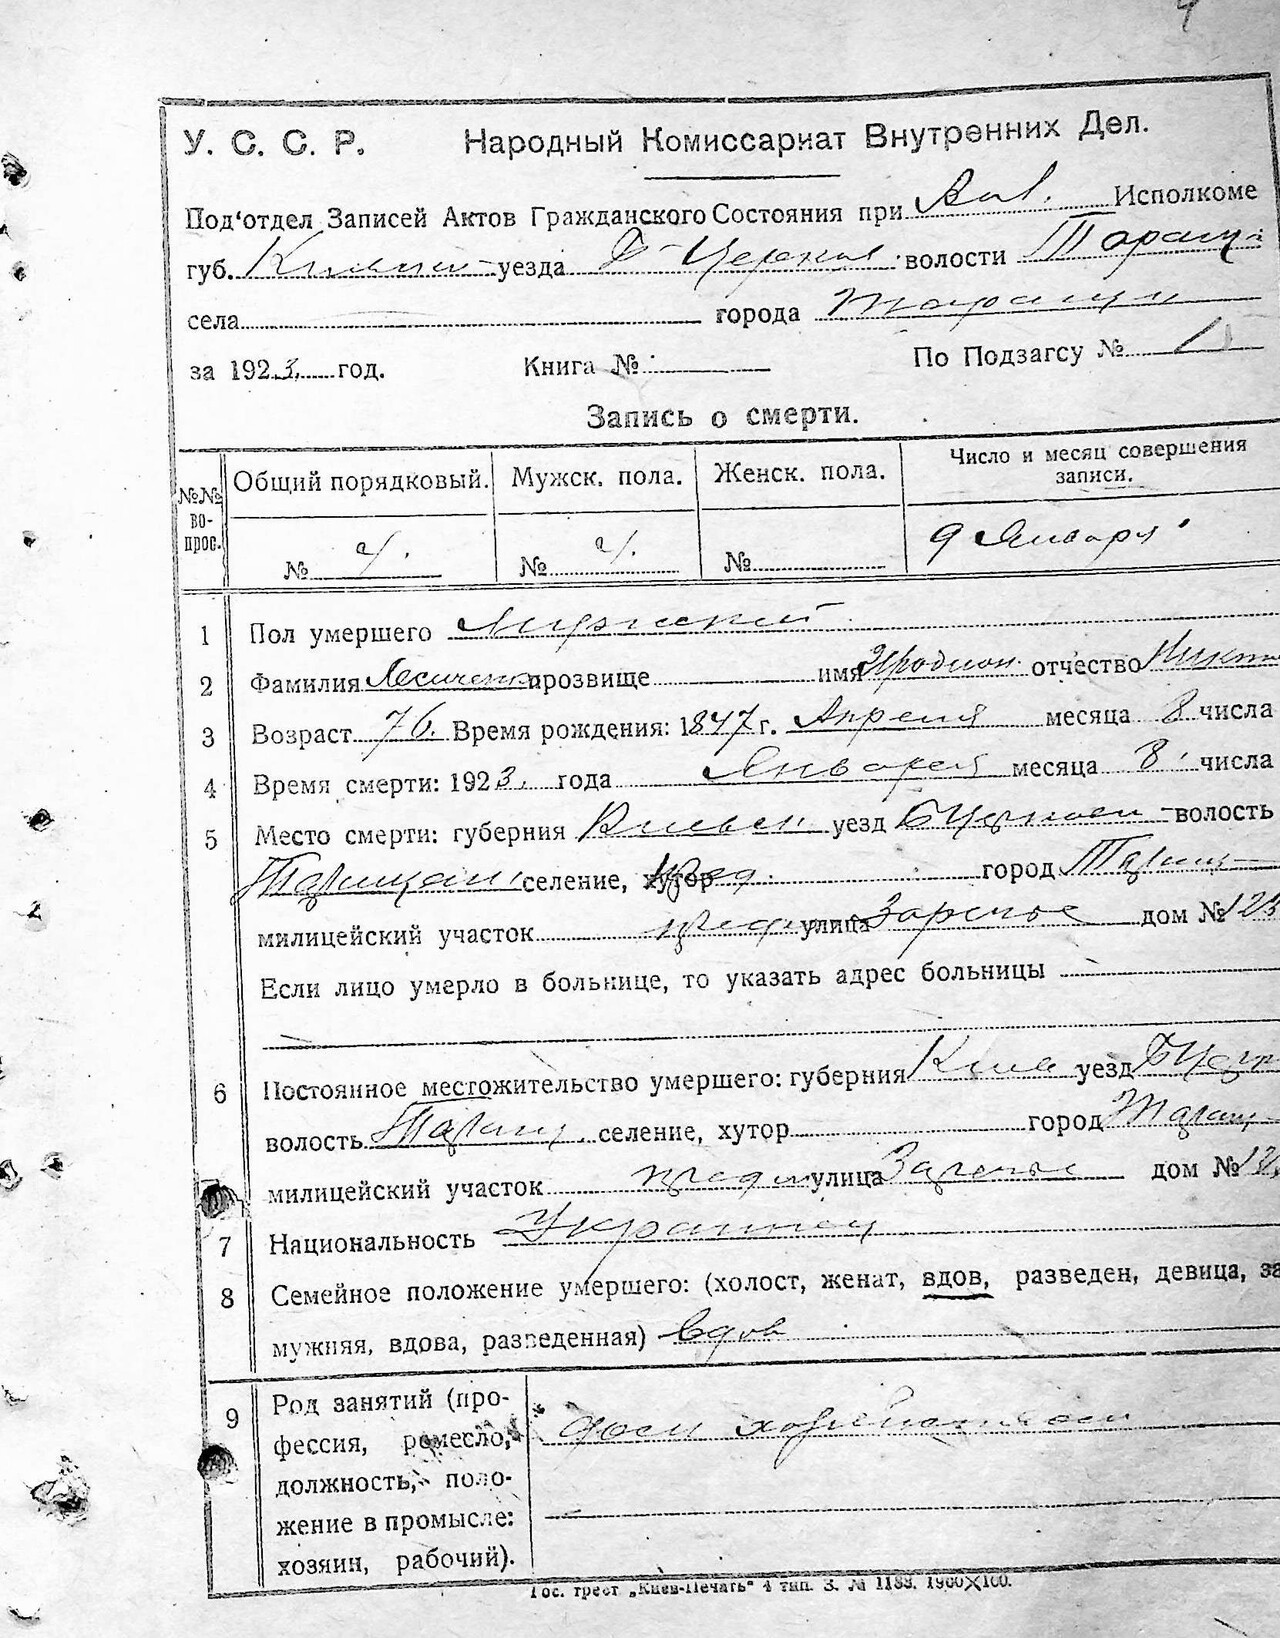 У. С. С. Р. Народный Комиссариат Внутренних Дел.
Под'отдел Записей Актов Гражданского Состояния при Исполкоме
губ. уезда Б-Церков. волости Таращ.
села города Таращи
за 1923. год. Книга № По Подзагсу №
Запись о смерти.
№№ вопрос. Общий порядковый. Мужск. пола. Женск. пола. Число и месяц совершения записи.
№ 4. № 4. № 9 Января
1 Пол умершего Мужской
2 Фамилия Лесиченко прозвище имя Иродион отчество Никит
3 Возраст 76. Время рождения: 1847 г. Апреля месяца 8 числа
4 Время смерти: 1923. года Января месяца 8. числа
5 Место смерти: губерния Киевск уезд БЦерков волость
Таращан. селение, хутор город Таращ
милицейский участок улица Заречье дом № 123
Если лицо умерло в больнице, то указать адрес больницы
6 Постоянное местожительство умершего: губерния Киев уезд БЦерк
волость Таращ. селение, хутор город Таращ
милицейский участок улица Заречье дом №
7 Национальность Украинец
8 Семейное положение умершего: (холост, женат, вдов, разведен, девица, за
мужняя, вдова, разведенная) вдов
9 Род занятий (про-
фессия, ремесло,
должность, поло-
жение в промысле:
хозяин, рабочий).
Гос. трест „Киев-Печать" 4 тип. З. № 1183. 1900×100.